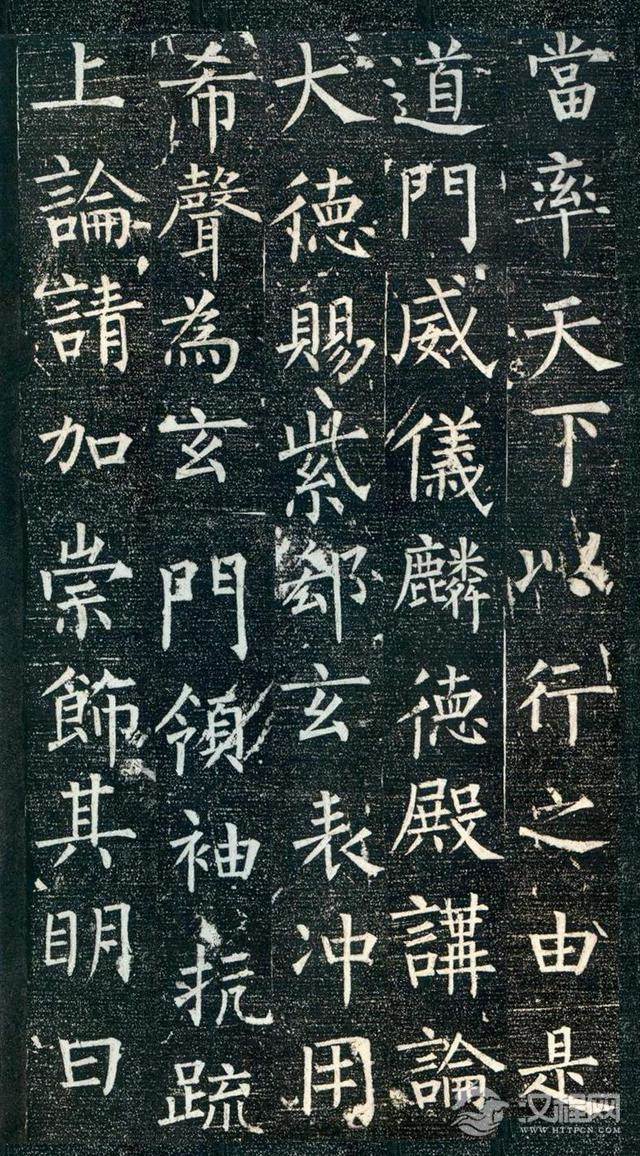 當率天下以行之由是
道門威儀麟德殿講論
大德賜紫郄玄表冲用
希聲為玄門領袖抗疏
上論請加崇飾其明日
文程网
WWW.HTTPCN.COM